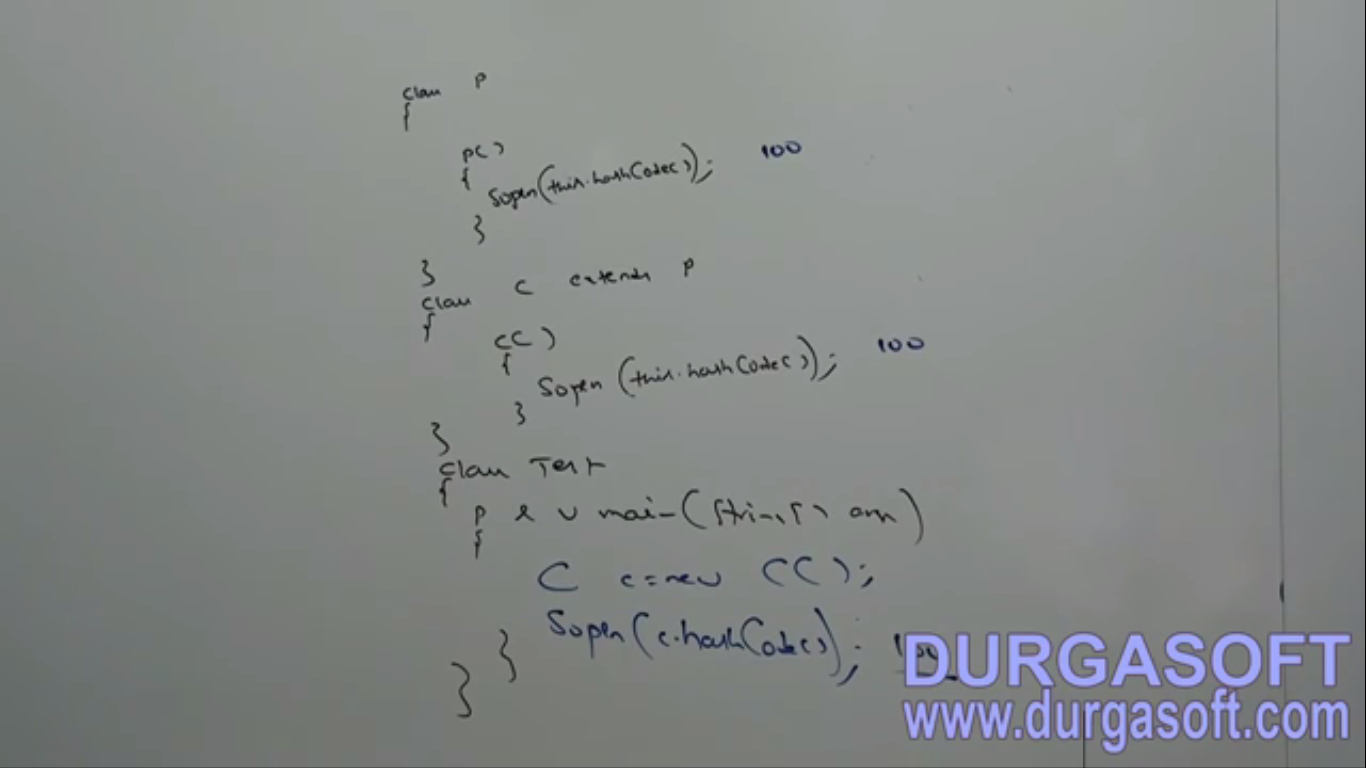 class P
{
P()
{
Sopln(this.hashCode()); 100
}
}
class C extends P
{
C()
{
Sopln(this.hashCode()); 100
}
}
class Test
{
P s v main(String[] args)
{
C c=new C();
Sopln(c.hashCode()); 100
}
}
DURGASOFT
www.durgasoft.com